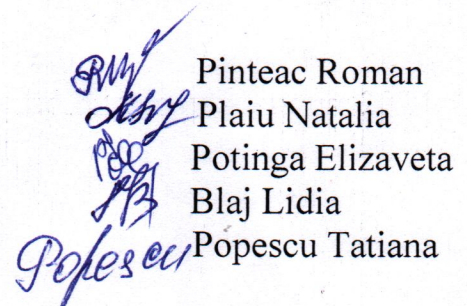 Pinteac Roman
Plaiu Natalia
Potinga Elizaveta
Blaj Lidia
Popescu Popescu Tatiana